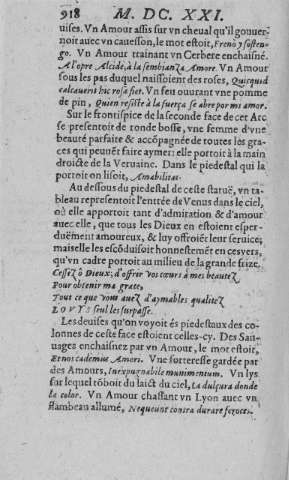 918 M. DC. XXI.
uises. Vn Amour assis sur vn cheual qu'il gouuer-
noit auec vn cauesson, le mot estoit, Freno y sosten-
go. Vn Amour trainant vn Cerbere enchaisné.
A l'opre Alcide, à la sembianza Amore. Vn Amour
sous les pas duquel naissoient des roses, Quicquid
calcauent hic rosa fiet. Vn feu ouurant vne pomme
de pin, Quien resiste à la fuerça se abre por mi amor.
Sur le frontispice de la seconde face de cet Arc
se presentoit de ronde bosse, vne femme d'vne
beauté parfaite & accōpagnée de toutes les gra-
ces qui peuuēt faire aymer: elle portoit à la main
droicte de la Veruaine. Dans le piedestal qui la
portoit on lisoit, Amabilitas.
Au dessous du piedestal de ceste statuë, vn ta-
bleau representoit l'entrée de Venus dans le ciel,
où elle apportoit tant d'admiration & d'amour
auec elle, que tous les Dieux en estoient esper-
duëment amoureux, & luy offroiēt leur seruice;
mais elle les escōduisoit honnestemēt en ces vers,
qu'vn cadre portoit au milieu de la grande frize.
Cessez ô Dieux; d'offrir vos cœurs à mes beautez
Pour obtenir ma grace,
Tout ce que vous auez d'aymables qualitez
LOVYS seul les surpasse.
Les deuises qu'on voyoit és piedestaux des co-
lonnes de ceste face estoient celles-cy. Des Sau-
uages enchaisnez par vn Amour, le mot estoit,
Et nos cedemus Amori. Vne forteresse gardée par
des Amours, Inexpugnabile munimentum. Vn lys
sur lequel tōboit du laict du ciel, La dulçura donde
la color. Vn Amour chassant vn Lyon auec vn
flambeau allumé, Nequeunt contra durare feroces.